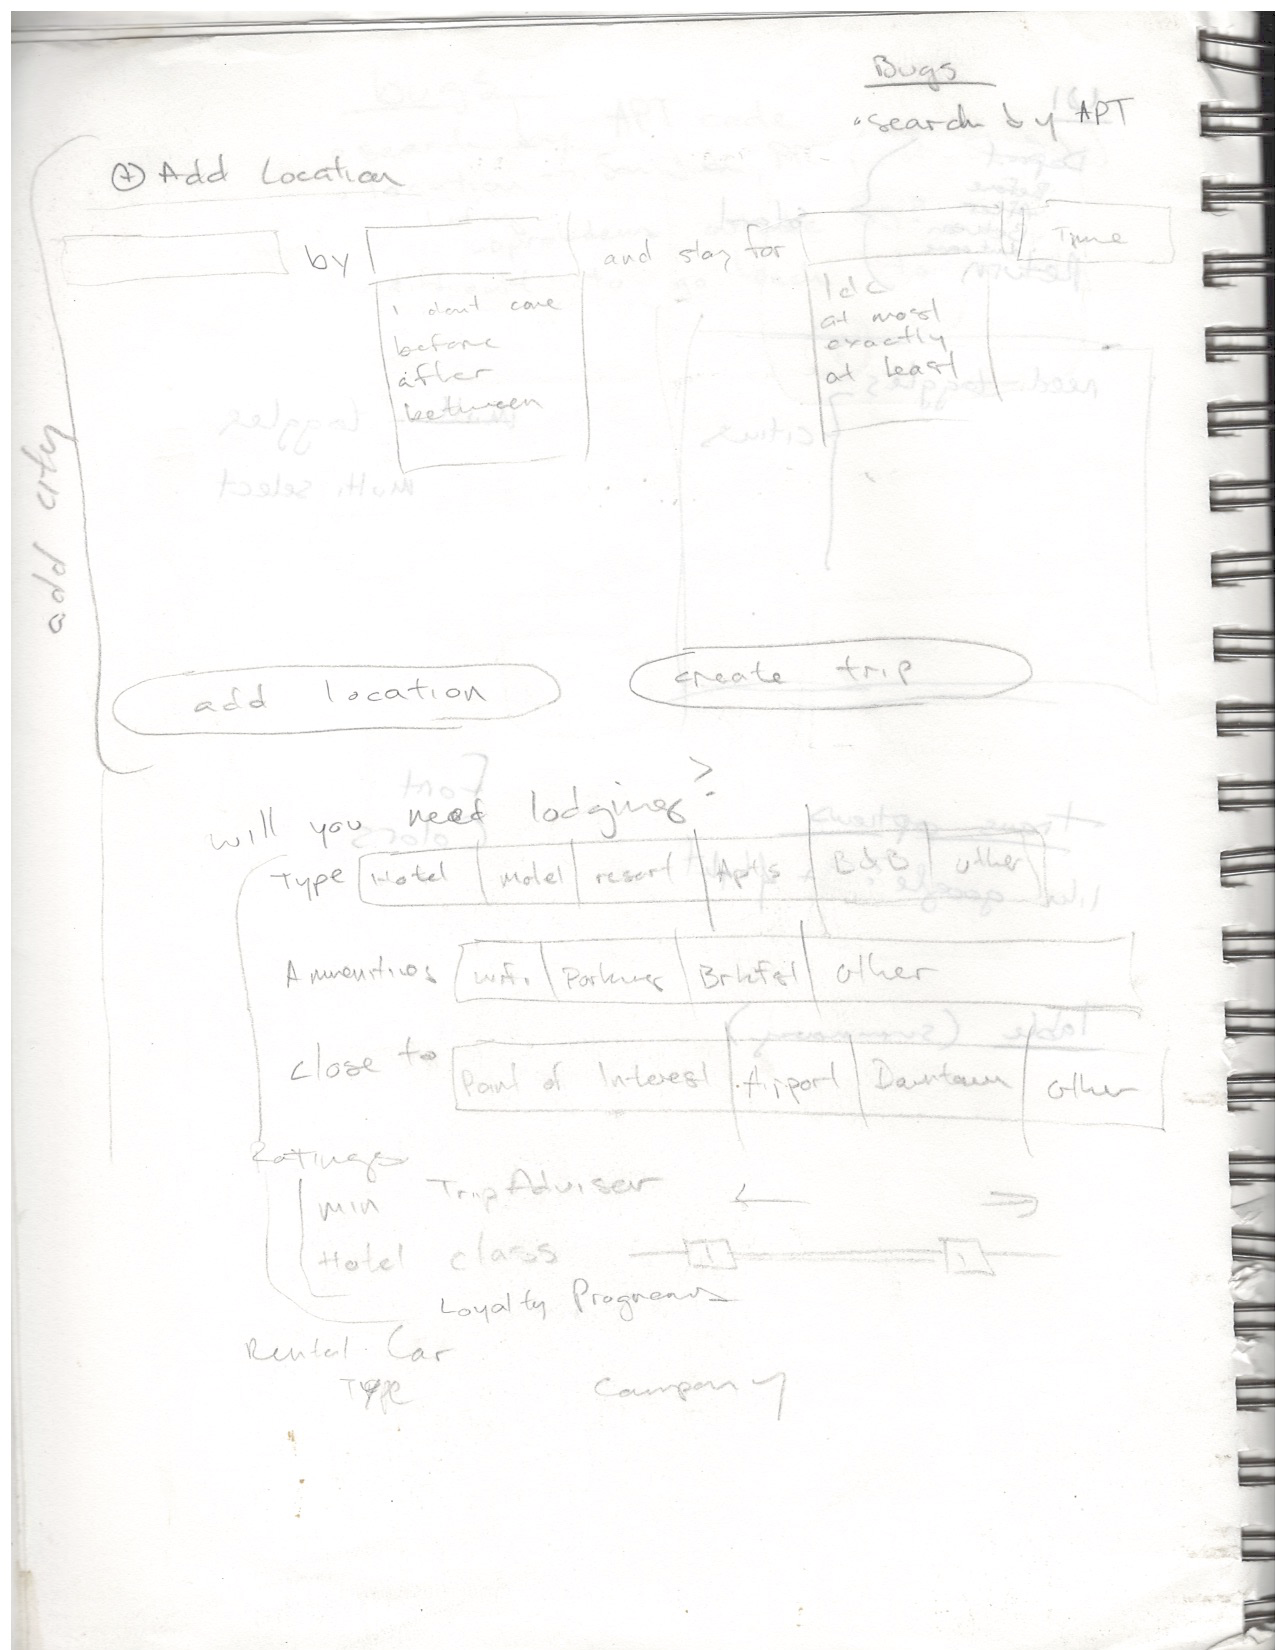 Bugs
• search by APT
+ Add Location
by
and stay for
Time
i dont care
before
after
between
Idc
at most
exactly
at least
add city
add location
create trip
will you need lodging?
Type Hotel motel resort Apts B&B other
Ammenities wifi Parking Brkfst other
close to Point of Interest Airport Downtown other
Ratings
min TripAdvisor
Hotel class
Loyalty Programs
Rental Car
Type Company